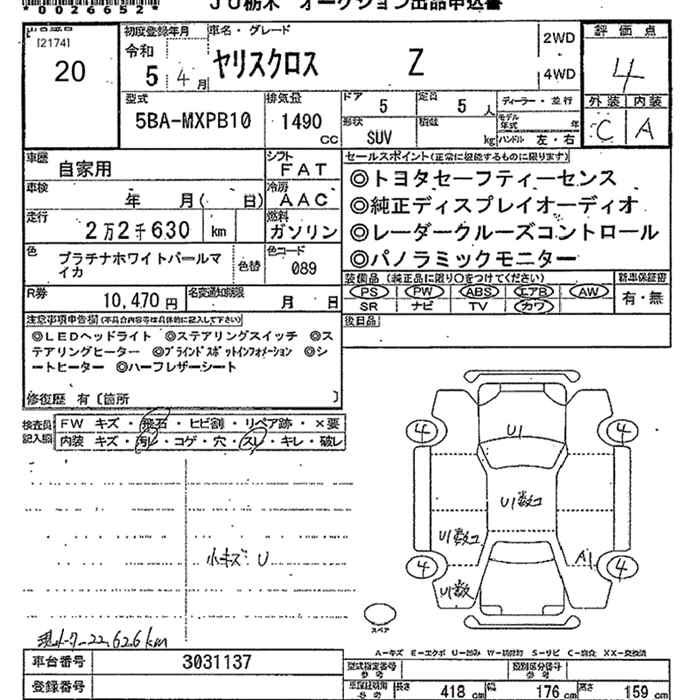 *0026652*
JU栃木 オークション出品申込書
[2174]
20
初度登録年月
令和
5年4月
車名・グレード
ヤリスクロス Z
2WD
4WD
評価点
4
外装 内装
C A
型式
5BA-MXPB10
排気量
1490
cc
ドア
5
定員
5人
ディーラー・並行
形状
SUV
積載
kg
モデル年式
年
ハンドル 左・右
車歴
自家用
シフト
FAT
車検
年 月( 日)
冷房
AAC
走行
2万2千630 km
燃料
ガソリン
色
プラチナホワイトパールマイカ
色替
色コード
089
R券
10,470円
名変通知期限
月 日
セールスポイント(正常に機能するものに限ります)
◎トヨタセーフティーセンス
◎純正ディスプレイオーディオ
◎レーダークルーズコントロール
◎パノラミックモニター
装備品(純正品に限り○をつけてください)
PS PW ABS エアB AW
SR ナビ TV カワ
新車保証書
有・無
後日品
注意事項申告欄(不具合内容等は具体的に記入して下さい)
◎LEDヘッドライト ◎ステアリングスイッチ ◎ス
テアリングヒーター ◎ブラインドスポットインフォメーション ◎シ
ートヒーター ◎ハーフレザーシート
修復歴 有〔箇所 〕
検査員記入欄
FW キズ・飛石・ヒビ割・リペア跡・×要
内装 キズ・汚レ・コゲ・穴・スレ・キレ・破レ
小キズ U
現メーター22,626km
U1
4
4
U1数コ
U1数コ
A1
4
4
U1数
スペア
A-キズ E-エクボ U-凹み W-補修跡 S-サビ C-腐食 XX-交換済
車台番号
3031137
登録番号
型式指定番号
参考
類別区分番号
参考
長さ
418
cm
幅
176
cm
高さ
159
cm